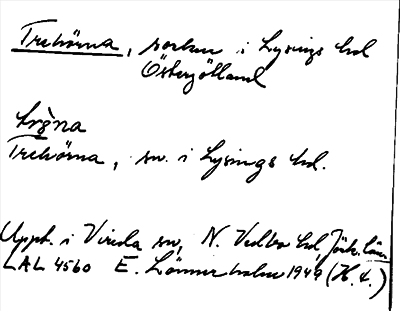 Trehörna, socken i Lysings hd
Östergötland
trg̀na
Trehörna, sn. i Lysings hd.
Uppt. i Vireda sn, N. Vedbo hd, Jönk. län
LAL 4560 E. Lönnerholm 1949 (H. t.)